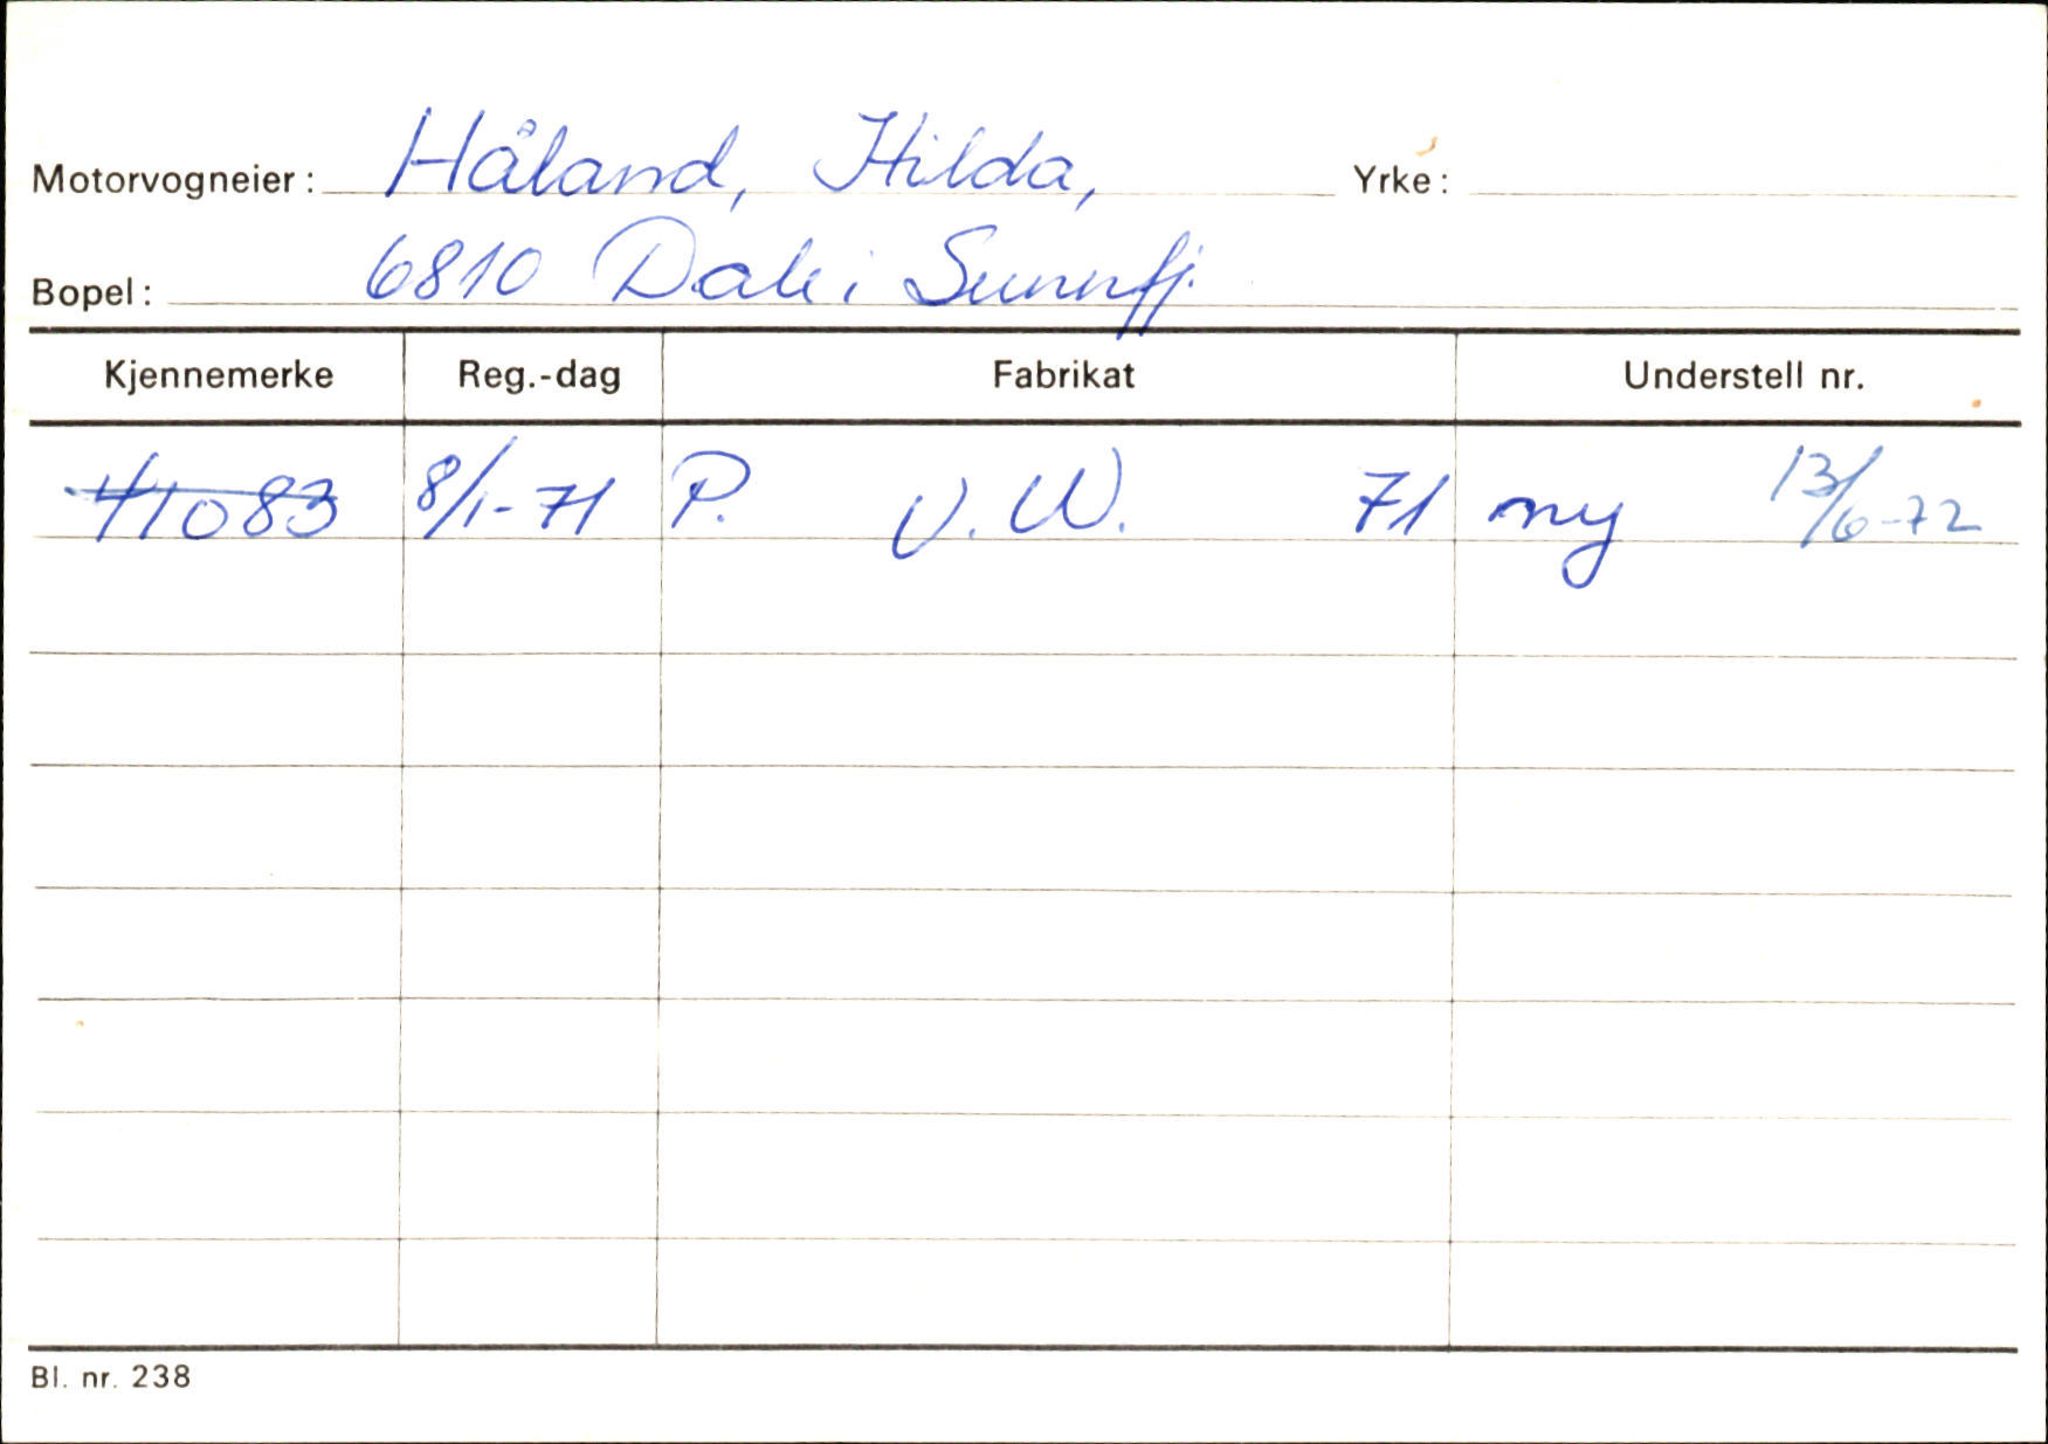 Motorvogneier: Håland, Hilda, Yrke:
Bopel: 6810 Dale i Sunnfj.
Kjennemerke Reg.-dag Fabrikat Understell nr.
41083 8/1-71 P. V.W. 71 ny 13/6-72
Bl. nr. 238